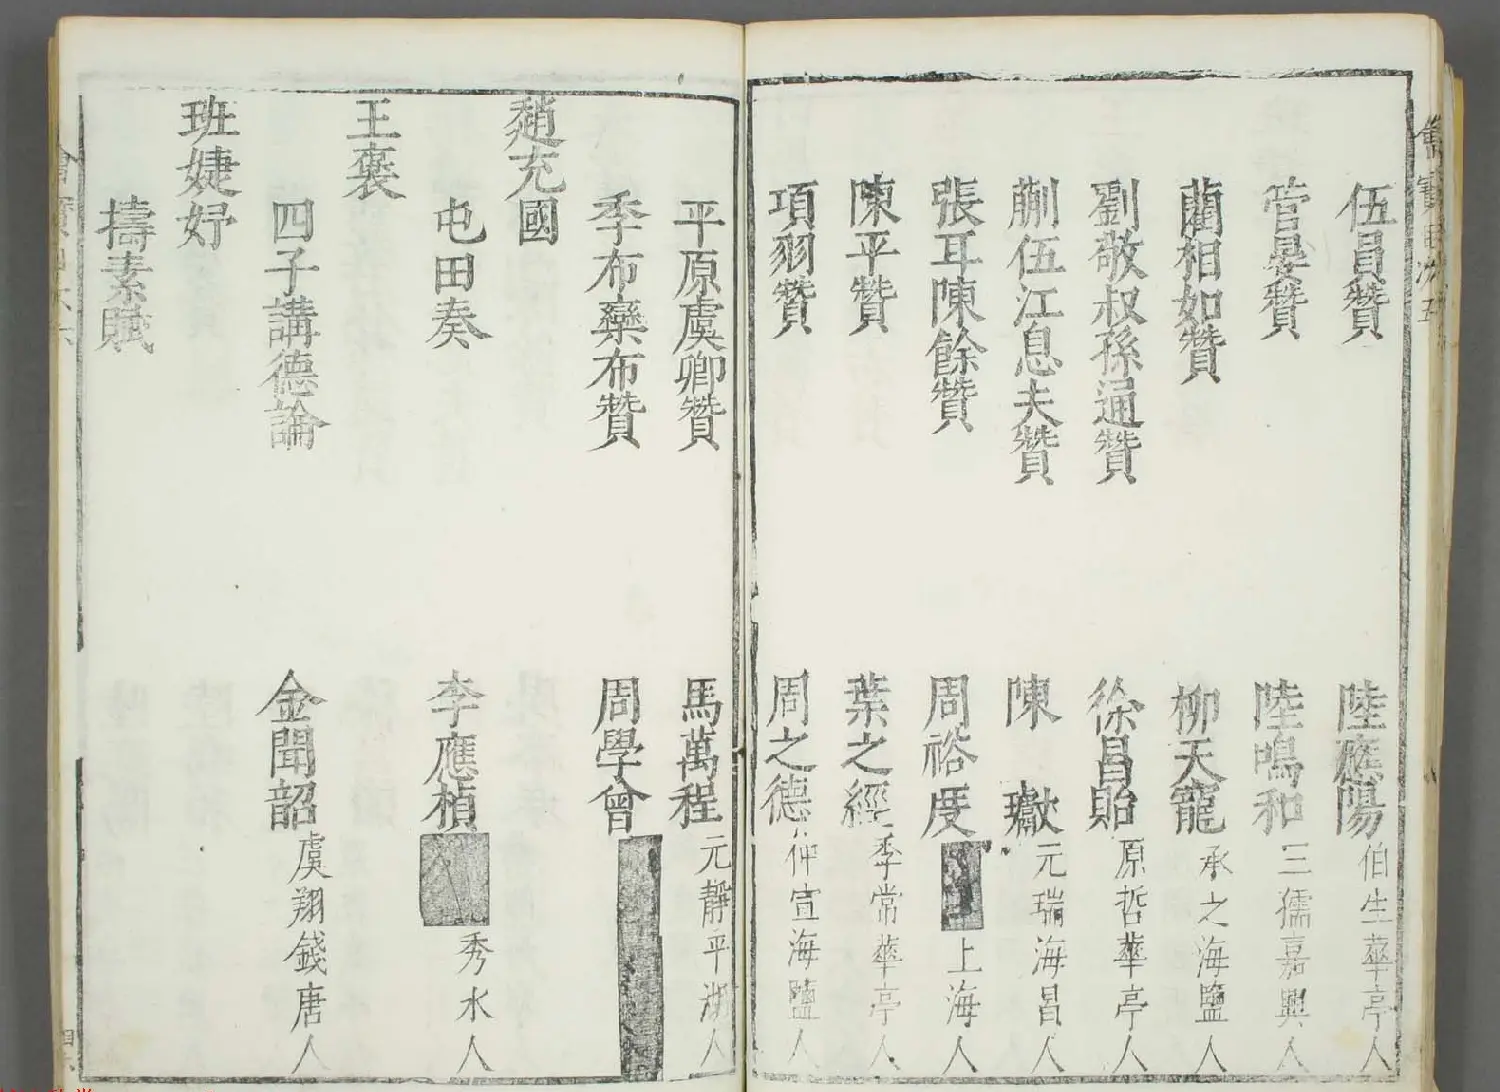 伍員贊 陸應陽 伯生華亭人
管晏贊 陸鳴和 三孺嘉興人
藺相如贊 柳天寵 承之海鹽人
劉敬叔孫通贊 徐昌貽 原哲華亭人
蒯伍江息夫贊 陳𤩽 元瑞海昌人
張耳陳餘贊 周裕度 上海人
陳平贊 葉之經 季常華亭人
項羽贊 周之德 仲宣海鹽人
平原虞卿贊 馬萬程 元靜平湖人
季布欒布贊 周學曾
趙充國
屯田奏 李應楨 秀水人
王褒
四子講德論 金聞韶 虞翔錢唐人
班婕妤
擣素賦